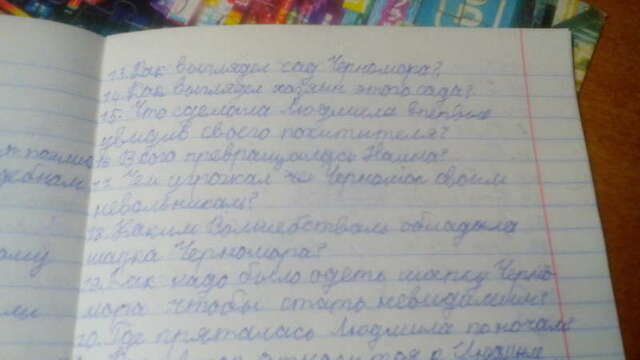 13. Как выглядел сад Черномора?
14. Как выглядел хозяин этого сада?
15. Что сделала Людмила впервые
увидив своего похитителя?
16 В кого превращалась Наина?
17. Чем угрожал Черномор своим
невольникам?
18. Каким волшебством обладала
шапка Черномора?
19. Как надо было одеть шапку Черно-
мора чтобы стать невидимым?
20. Где пряталась Людмила по ночам?